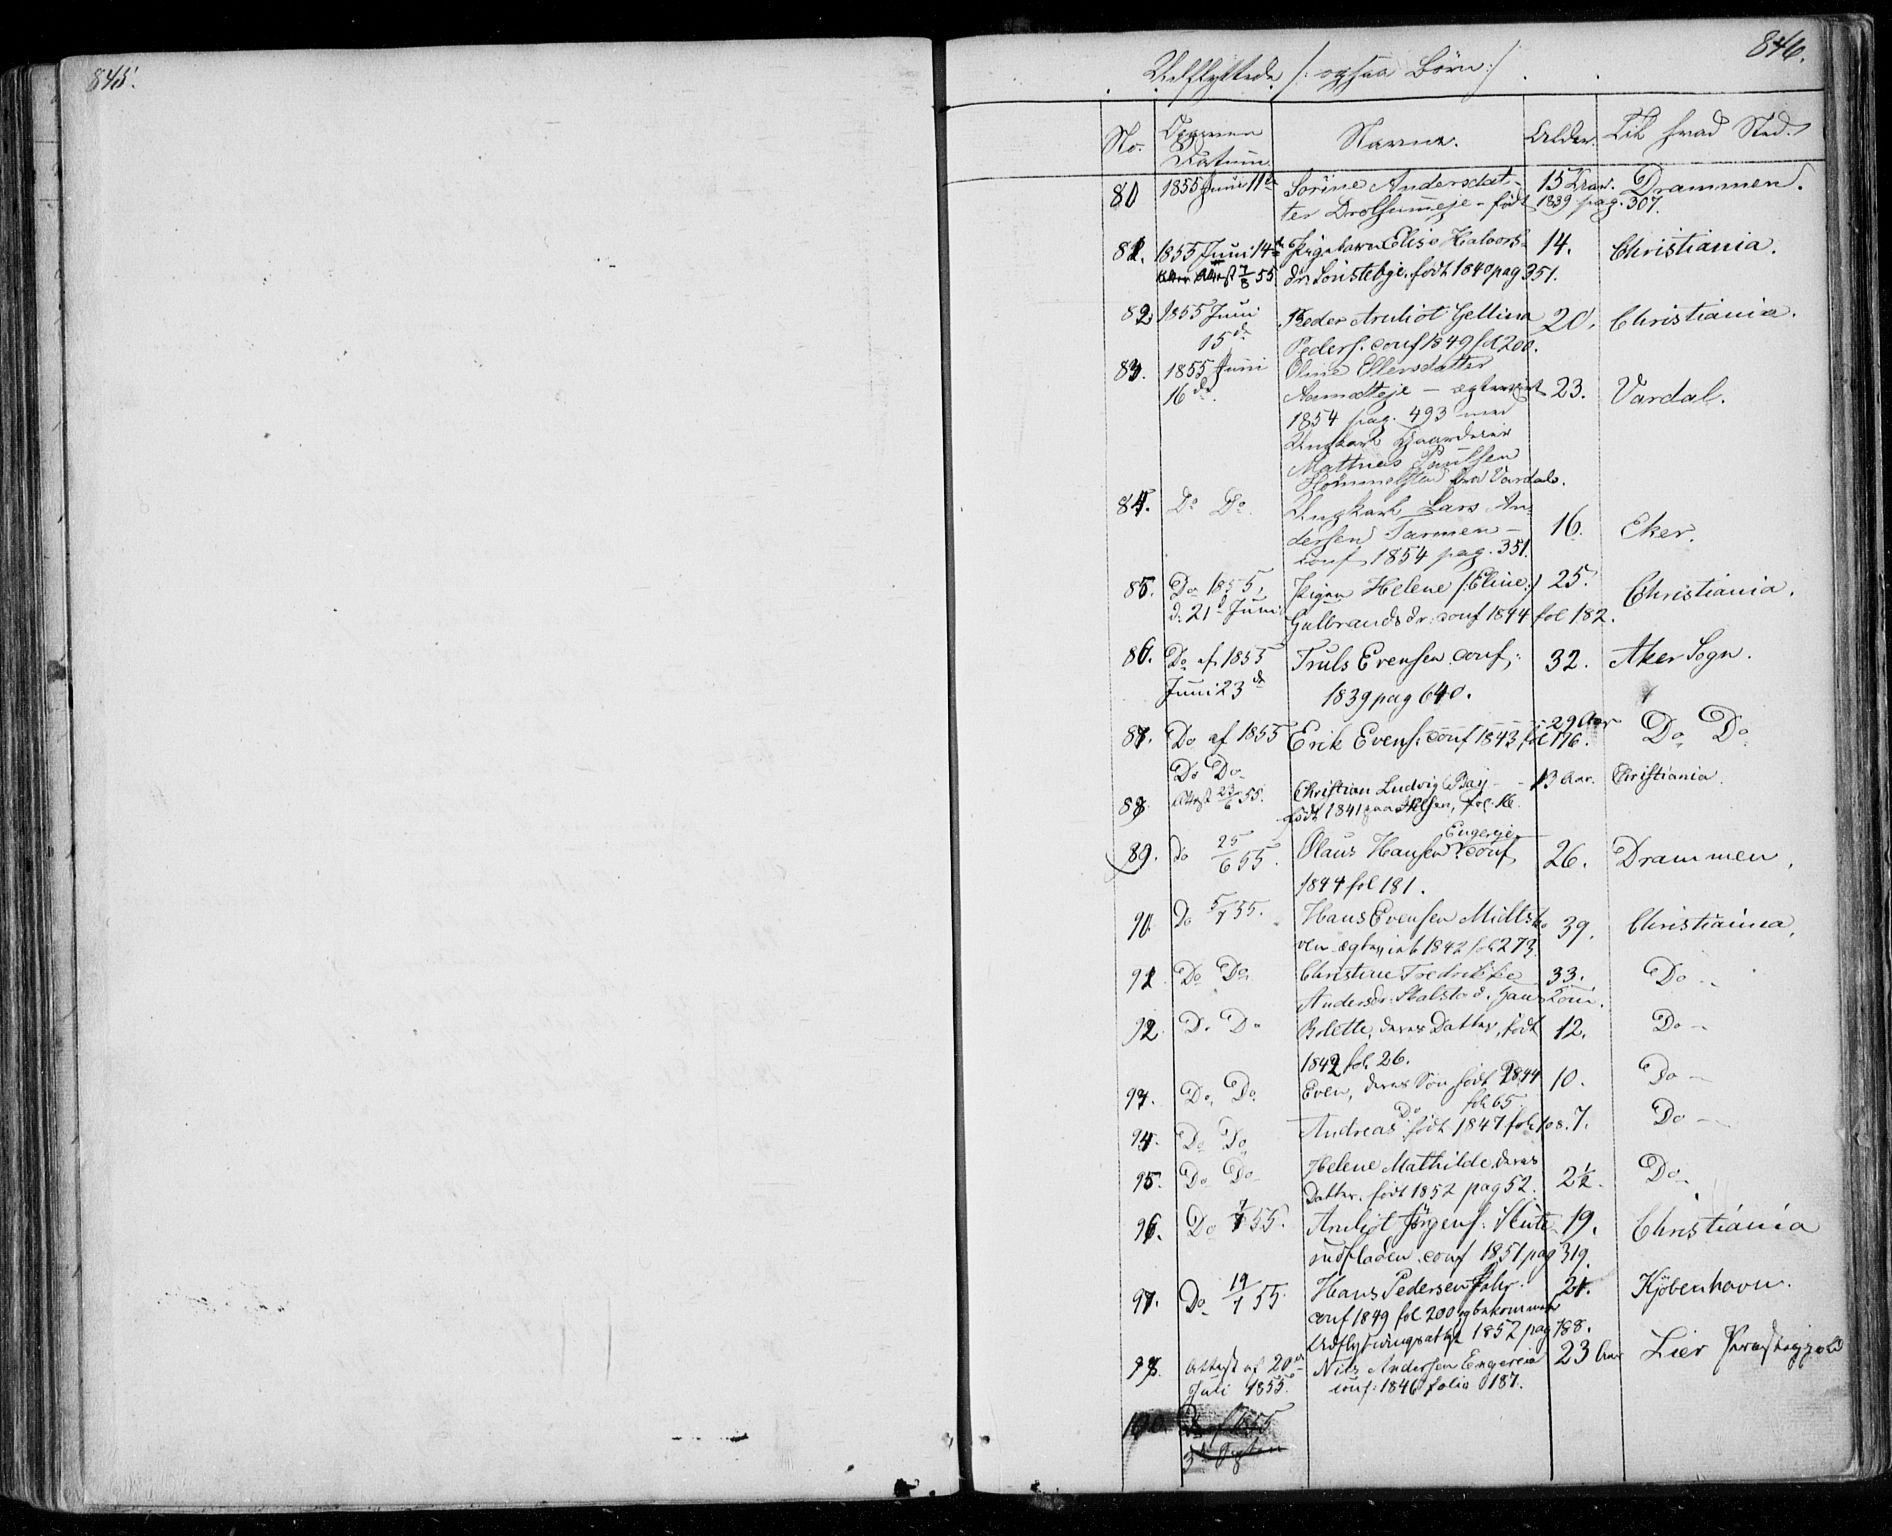 845.
846.
Udflyttede /: ogsaa Börn :/
No. Datum Navne. Alder. Til hvad Sted.
80 1855 Juni 11te Sörine Andersdat- 15 Drammen.
ter födt 1839 pag. 307.
81. 1855 Juni 14de Pigebarn Elise Halvors- 14. Christiania.
Attest 7/8 55 dr. födt 1840 pag 351.
82. 1855 Juni Peder Arnliot Gellius 20. Christiania.
15de Peders. conf 1849 fol 200.
83. 1855 Juni Oline Ellersdatter
16de Aamodteje - ægteviet 23. Vardal.
1854 pag. 493 med
Ungkarl Gaardeier
Mathias Paulsen
fra Vardal.
84. Do Do. Ungkarl Lars An-
dersen Tarmen - 16. Eker.
conf 1854 pag. 351.
85. Do 1855, Pigen Helene /: Eline :/ 25. Christiania.
d. 21de Juni Gulbrandsdr: conf 1844 fol 182.
86. Do af 1855 Truls Evensen conf: 32. Aker Sogn.
Juni 23de 1839 pag 640.
87. Do af 1855 Erik Evens: conf 1843 fol 176. 29 Aar Do Do
Do Do
88. Attest 23/6 55. Christian Ludvig Bay - 13 Aar. Christiania.
födt 1841 fol. 16.
Engereje
89. do 25/6 55. Olaus Hansen conf 26. Drammen.
1844 fol 181.
90. Do 5/7 55. Hans Evensen Mülts- 39. Christiania,
ven ægteviet 1842 fol 273.
91 Do Do Christine Fredrikke 33. Do -
Andersdr: hans Kone.
92 Do Do Bolette, deres Datter, födt 12. Do -
1842 fol. 26.
93. Do Do Even, deres Sön födt 1844 10. Do -
fol 65.
94. Do Do Andreas Do födt 1847 fol 108. 7. Do -
95. Do Do Helene Mathilde, deres
Datter. födt 1852 pag 52. 2½. Do
96. Do 7/7 55. Arnliot Jörgens: Skute- 19. Christiania
rudfladen conf 1851 pag 319.
97. Do 19/7 55. Hans Pedersen 21. Kjöbenhavn.
conf 1849 fol 200 og bekommet
Udflytningsattest 1852 pag 788.
98. Attest af 20de Nils Andersen Engereie 23 Aar Lier Præstegjeld
Juli 1855. conf: 1846 folio 187.
100. Do af 1855